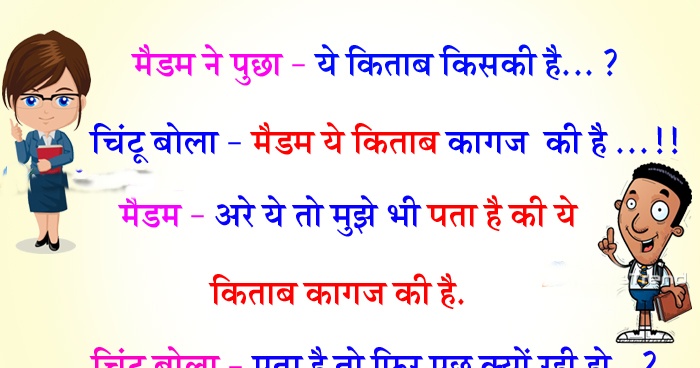 मैडम ने पुछा - ये किताब किसकी है... ?
चिंटू बोला - मैडम ये किताब कागज की है ...!!
मैडम - अरे ये तो मुझे भी पता है की ये
किताब कागज की है.
चिंटू बोला - पता है तो फिर पूछ क्यों रही हो...?